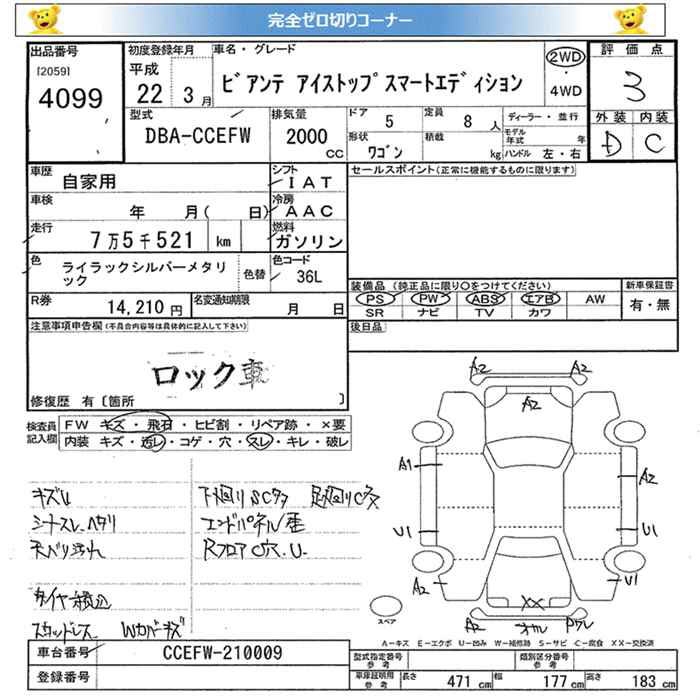 完全ゼロ切りコーナー
出品番号
[2059]
4099
初度登録年月
平成
22 3 月
車名・グレード
ビアンテ アイストップスマートエディション
2WD
4WD
評価点
3
外装 内装
D C
型式
DBA-CCEFW
排気量
2000
CC
ドア
5
定員
8 人
形状
ワゴン
積載
kg
ディーラー・並行
モデル年式 年
ハンドル 左・右
車歴
自家用
シフト
IAT
車検
年 月( 日)
冷房
AAC
走行
7万5千521 km
燃料
ガソリン
色
ライラックシルバーメタリック
色替
色コード
36L
R券
14,210 円
名変通知期限
月 日
セールスポイント(正常に機能するものに限ります)
装備品 (純正品に限り○をつけてください)
PS PW ABS エアB AW
SR ナビ TV カワ
新車保証書
有・無
後日品
注意事項申告欄(不具合内容等は具体的に記入して下さい)
ロック車
修復歴 有 〔箇所 〕
検査員記入欄
FW キズ・飛石・ヒビ割・リペア跡・×要
内装 キズ・汚レ・コゲ・穴・スレ・キレ・破レ
キズU
シートスレ、ヘタリ
天バリ汚れ
タイヤ積込
スタッドレス Wカバーキズ
下廻りSCタタ 足廻りC大
エンドパネル歪
RフロアC穴、U
A2 A2
A2
A1
A2
U1
U1
A2
U1
XX
A2
スペア
A-キズ E-エクボ U-凹み W-補修跡 S-サビ C-腐食 XX-交換済
車台番号
CCEFW-210009
登録番号
型式指定番号
参考
類別区分番号
参考
車庫証明用
参考
長さ 471 cm
幅 177 cm
高さ 183 cm